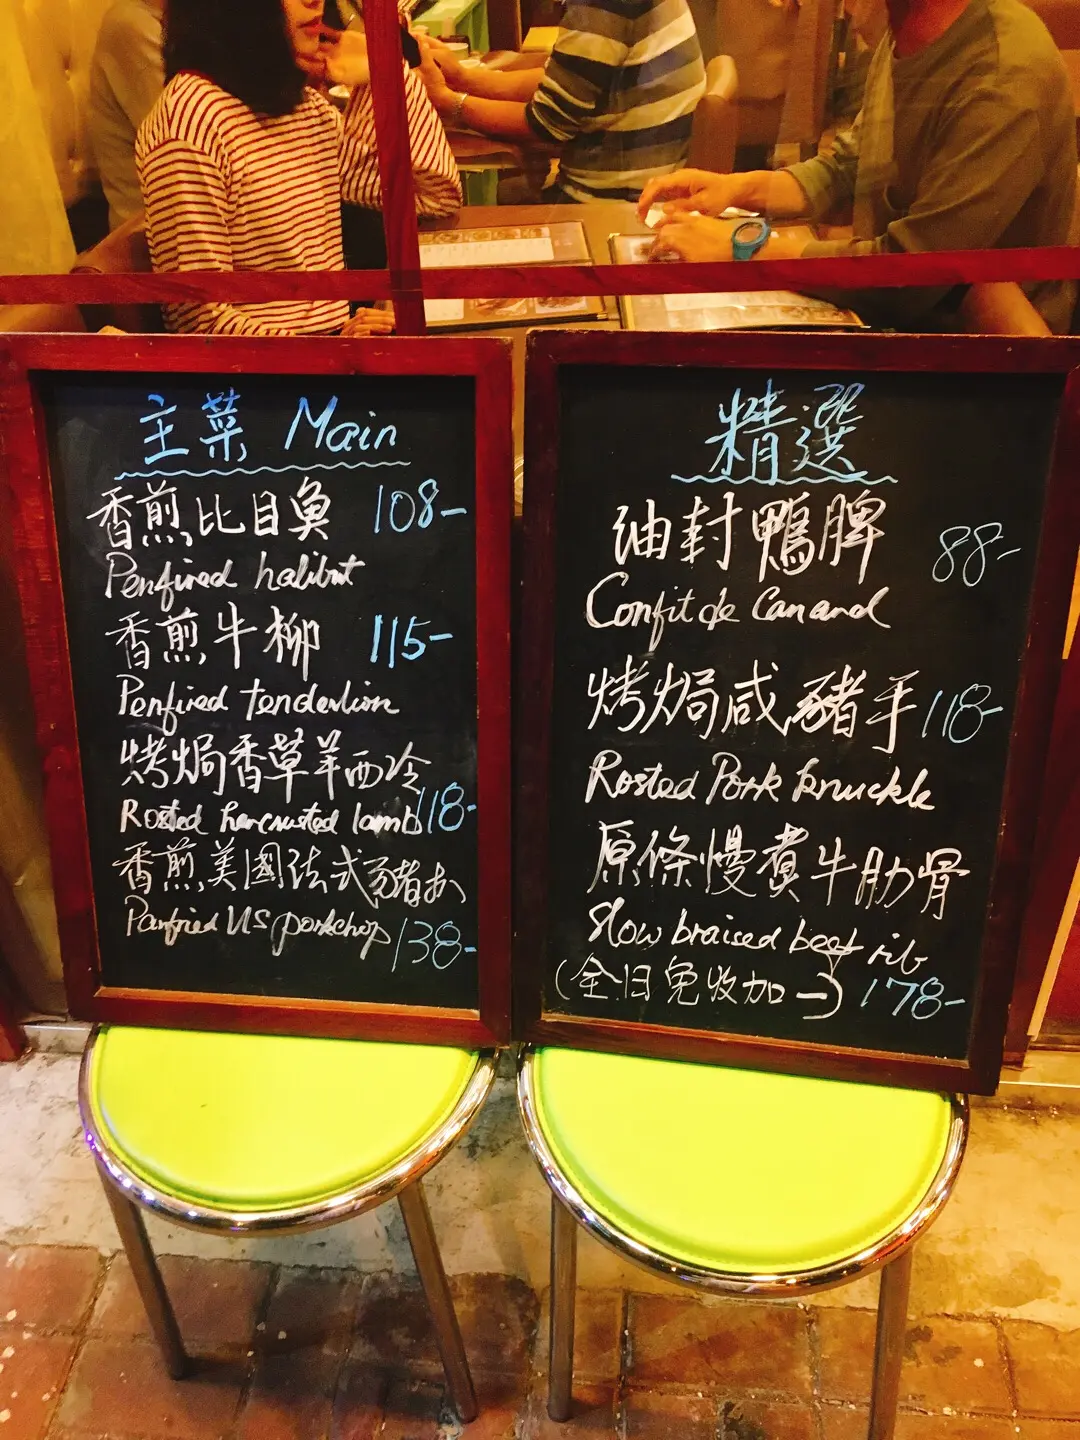 主菜 Main
香煎比目魚 108-
Penfired halibut
香煎牛柳 115-
Penfired tenderlion
烤焗香草羊西冷
Rosted hercrusted lamb 118-
香煎美國法式豬扒
Panfried US porkchop 138-
精選
油封鴨脾 88-
Confit de Canand
烤焗咸豬手 118-
Rosted Pork knuckle
原條慢煮牛肋骨
Slow braised beef rib
(全日免收加一) 178-